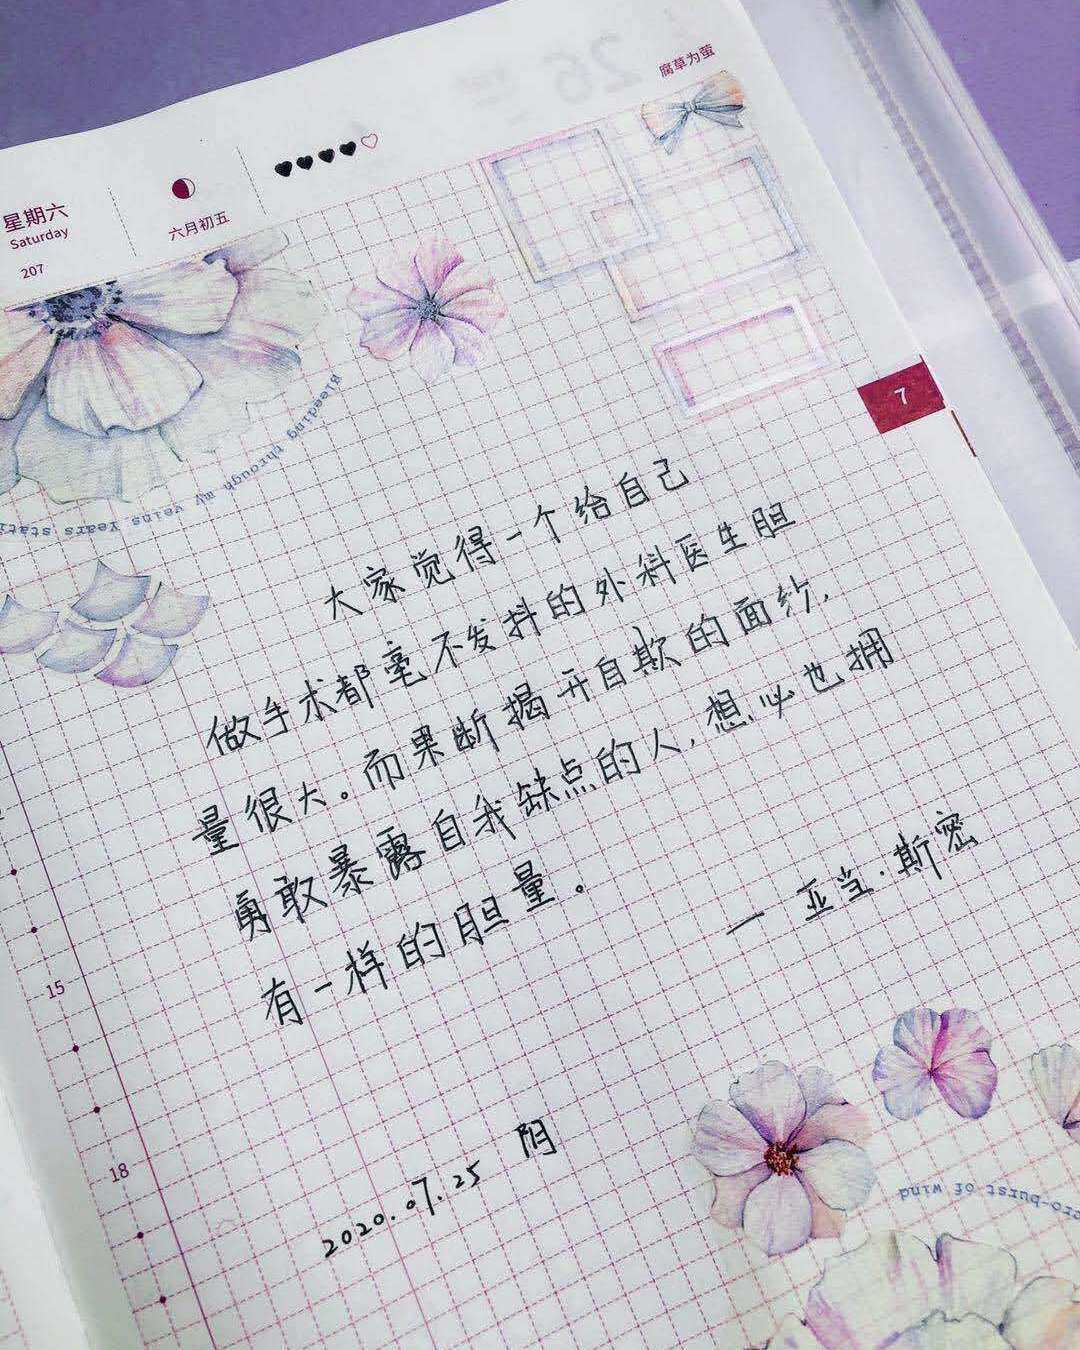 腐草为萤
星期六
Saturday
207
六月初五
7
Bleeding through my veins Years stati
大家觉得一个给自己
做手术都毫不发抖的外科医生胆
量很大。而果断揭开自欺的面纱，
勇敢暴露自我缺点的人，想必也拥
有一样的胆量。
— 亚当·斯密
15
18
2020.07.25 阴
ro-burst of wind